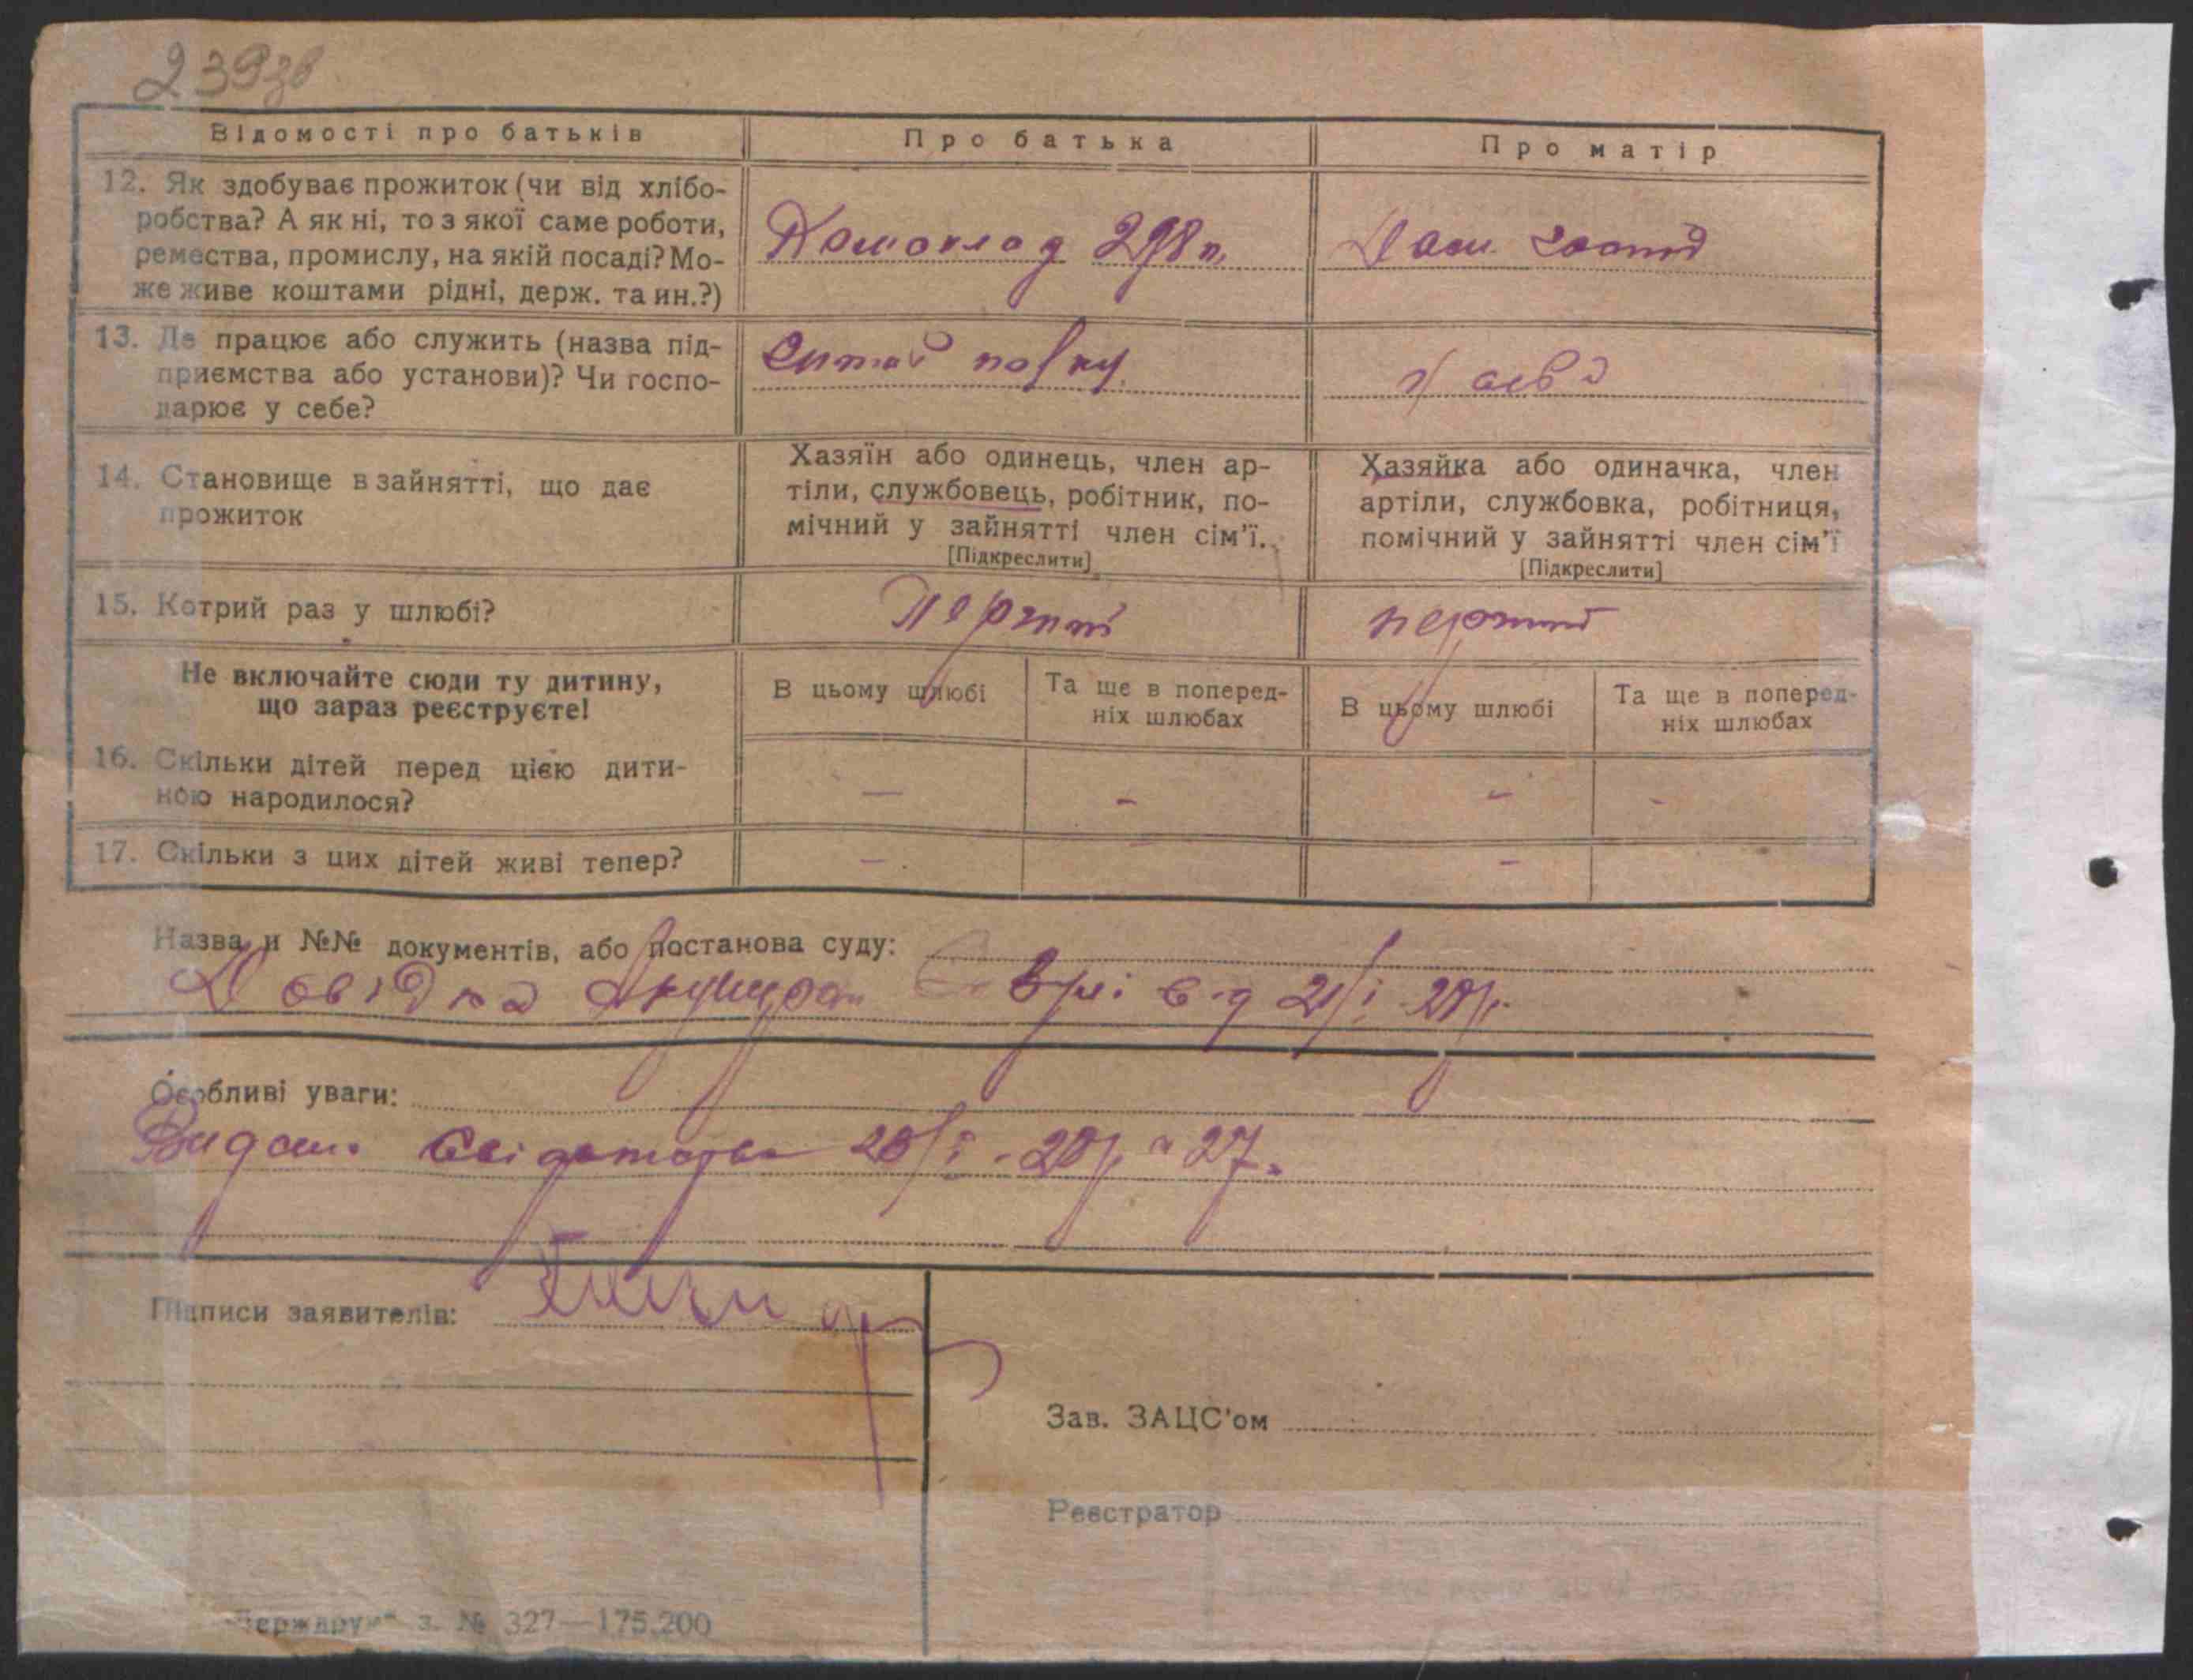 239зв
Відомості про батьків
Про батька
Про матір
12. Як здобуває прожиток (чи від хлібо-
робства? А як ні, то з якої саме роботи,
ремества, промислу, на якій посаді? Мо-
же живе коштами рідні, держ. та ин.?)
298 п.
Дом.
13. Де працює або служить (назва під-
приємства або установи)? Чи госпо-
дарює у себе?
полку
14. Становище в зайнятті, що дає
прожиток
Хазяїн або одинець, член ар-
тіли, службовець, робітник, по-
мічний у зайнятті член сім'ї.
[Підкреслити]
Хазяйка або одиначка, член
артіли, службовка, робітниця,
помічний у зайнятті член сім'ї
[Підкреслити]
15. Котрий раз у шлюбі?
перший
перший
Не включайте сюди ту дитину,
що зараз реєструєте!
В цьому шлюбі
Та ще в поперед-
ніх шлюбах
В цьому шлюбі
Та ще в поперед-
ніх шлюбах
16. Скільки дітей перед цією дити-
ною народилося?
—
-
-
-
17. Скільки з цих дітей живі тепер?
—
-
-
Назва и №№ документів, або постанова суду:
Довідка Акушера від 21/I
Особливі уваги:
Видан. Свідоцтво 27.
Підписи заявителів:
Зав. ЗАЦС'ом
Реєстратор
"Держдрук" з. № 327—175.200